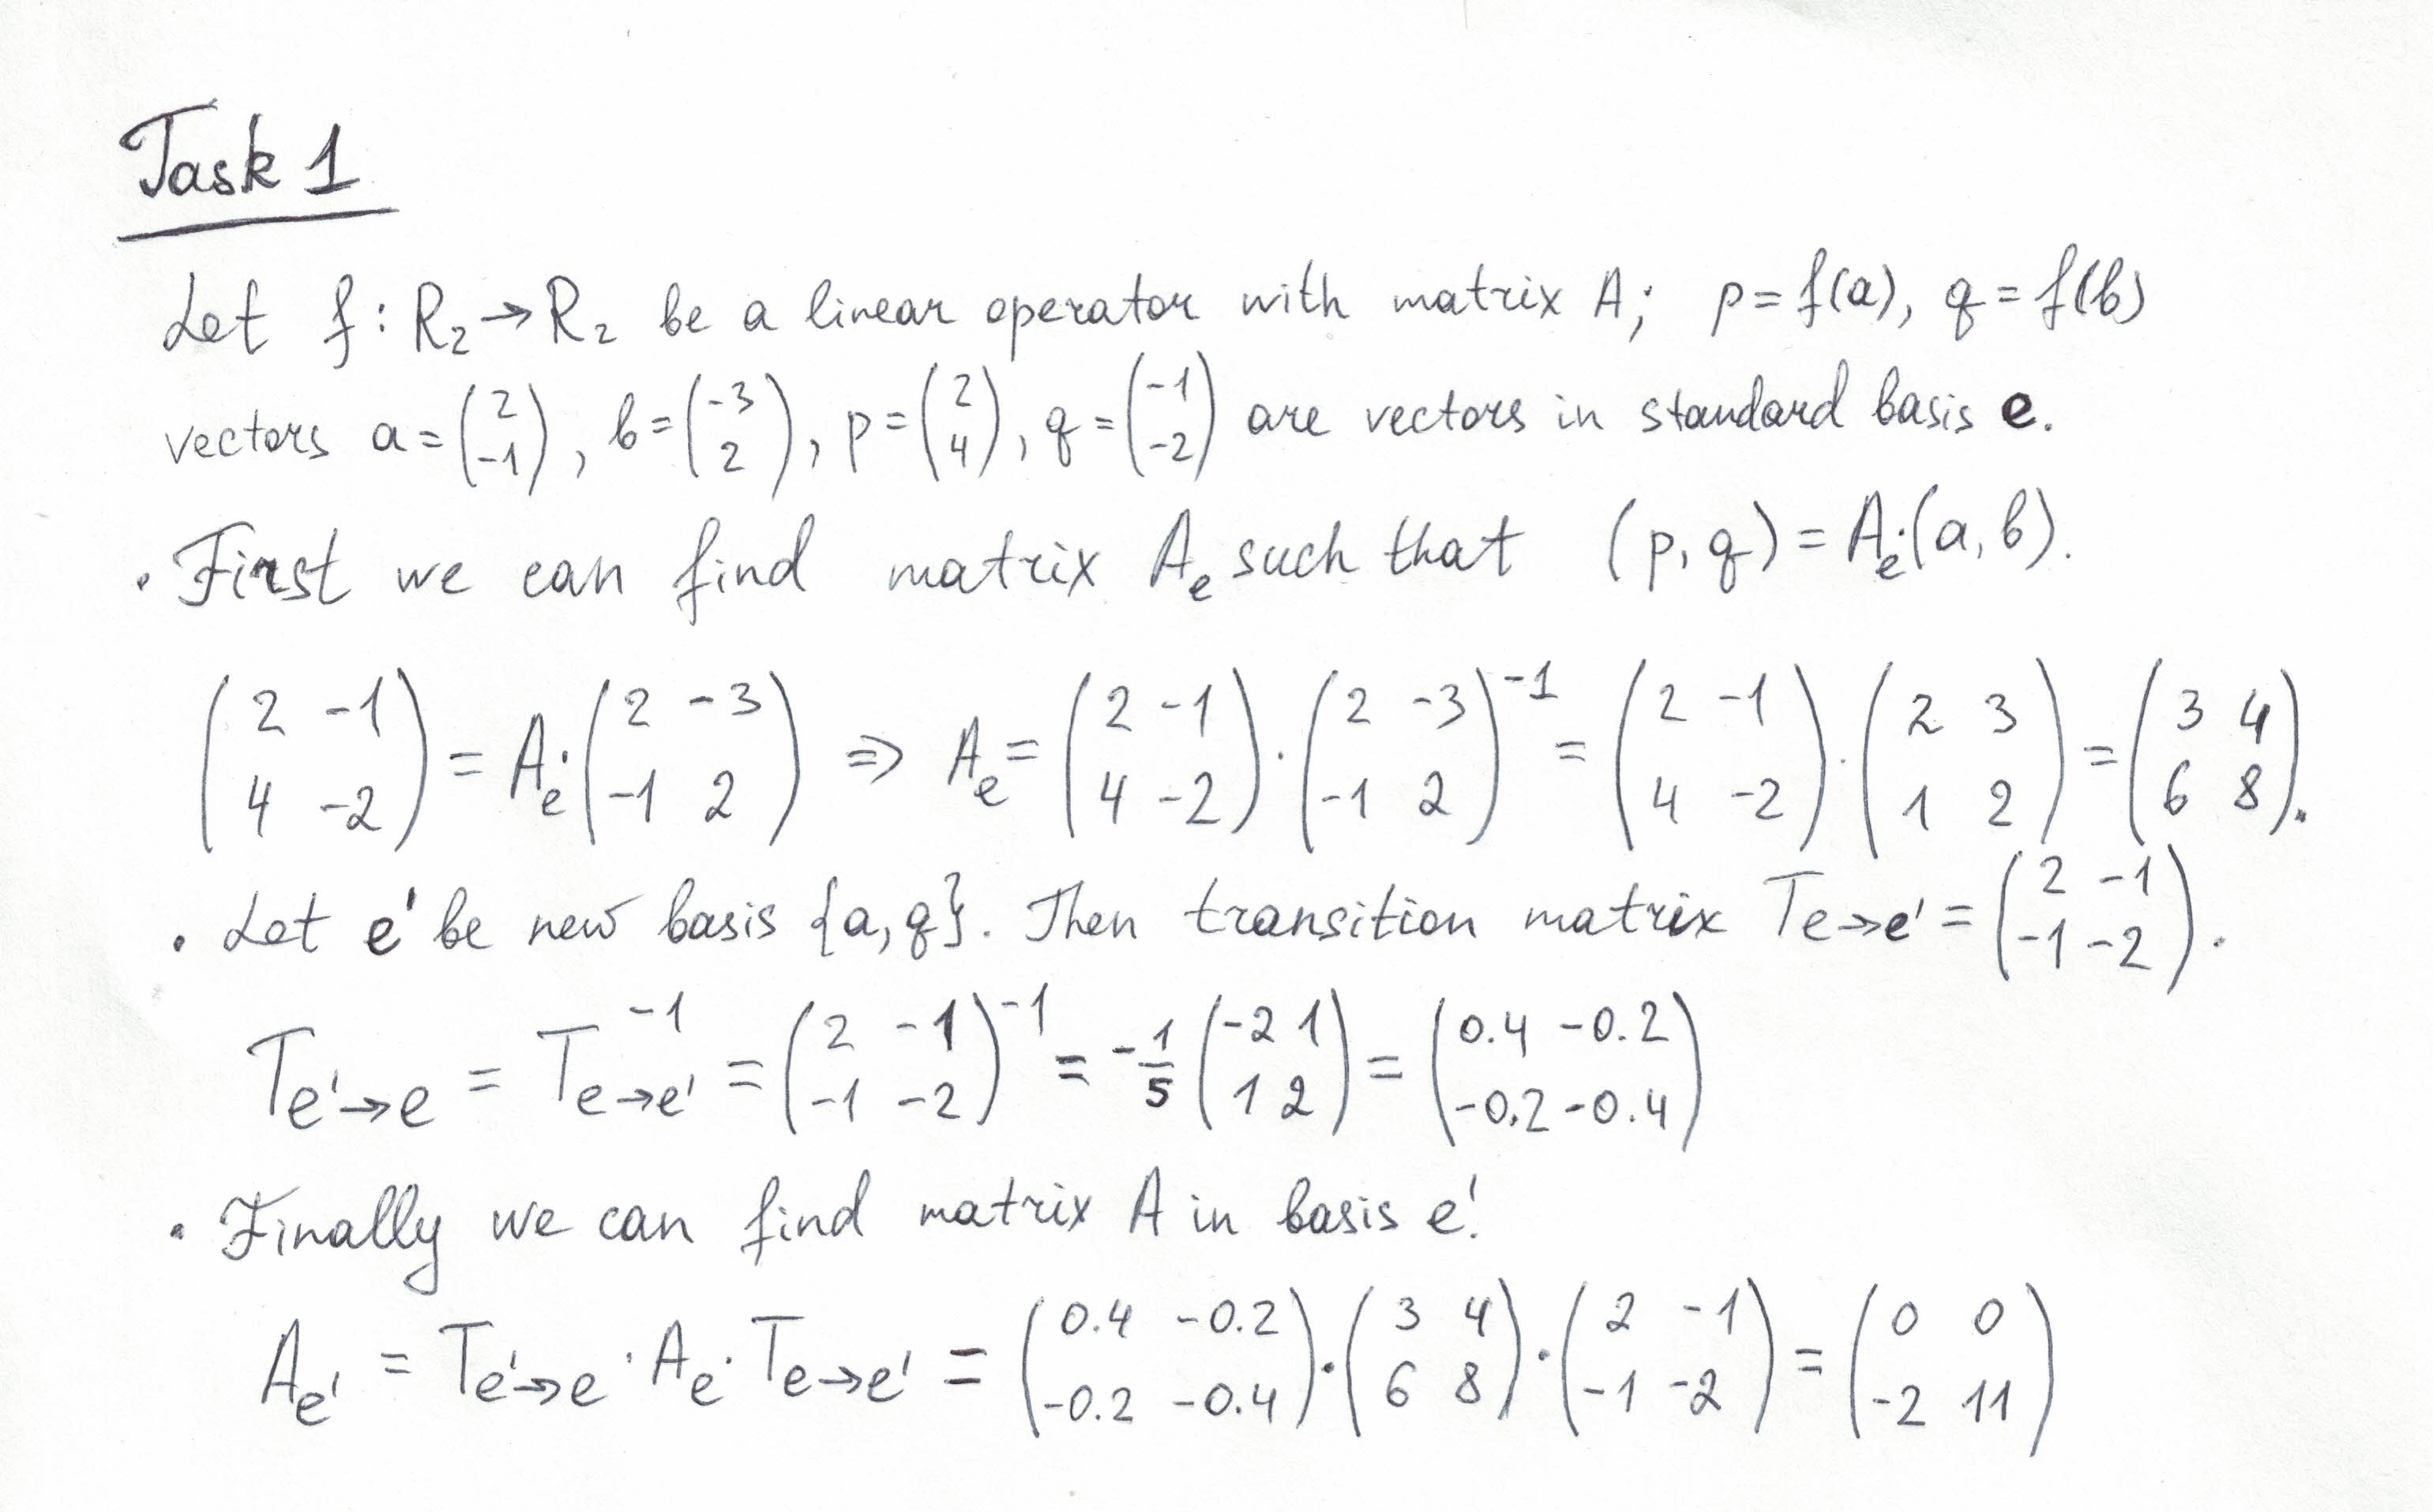 Task 1
Let f: R₂→R₂ be a linear operator with matrix A; p=f(a), q=f(b)
vectors a=(2 -1), b=(-3 2), p=(2 4), q=(-1 -2) are vectors in standard basis e.
· First we can find matrix Aₑ such that (p,q)=Aₑ·(a,b).
(2 -1; 4 -2) = Aₑ·(2 -3; -1 2) ⇒ Aₑ=(2 -1; 4 -2)·(2 -3; -1 2)⁻¹ = (2 -1; 4 -2)·(2 3; 1 2) = (3 4; 6 8).
· Let e' be new basis {a,q}. Then transition matrix Te→e' = (2 -1; -1 -2).
Te'→e = Te→e'⁻¹ = (2 -1; -1 -2)⁻¹ = -1/5 (-2 1; 1 2) = (0.4 -0.2; -0.2 -0.4)
· Finally we can find matrix A in basis e'.
Ae' = Te'→e · Ae · Te→e' = (0.4 -0.2; -0.2 -0.4)·(3 4; 6 8)·(2 -1; -1 -2) = (0 0; -2 11)